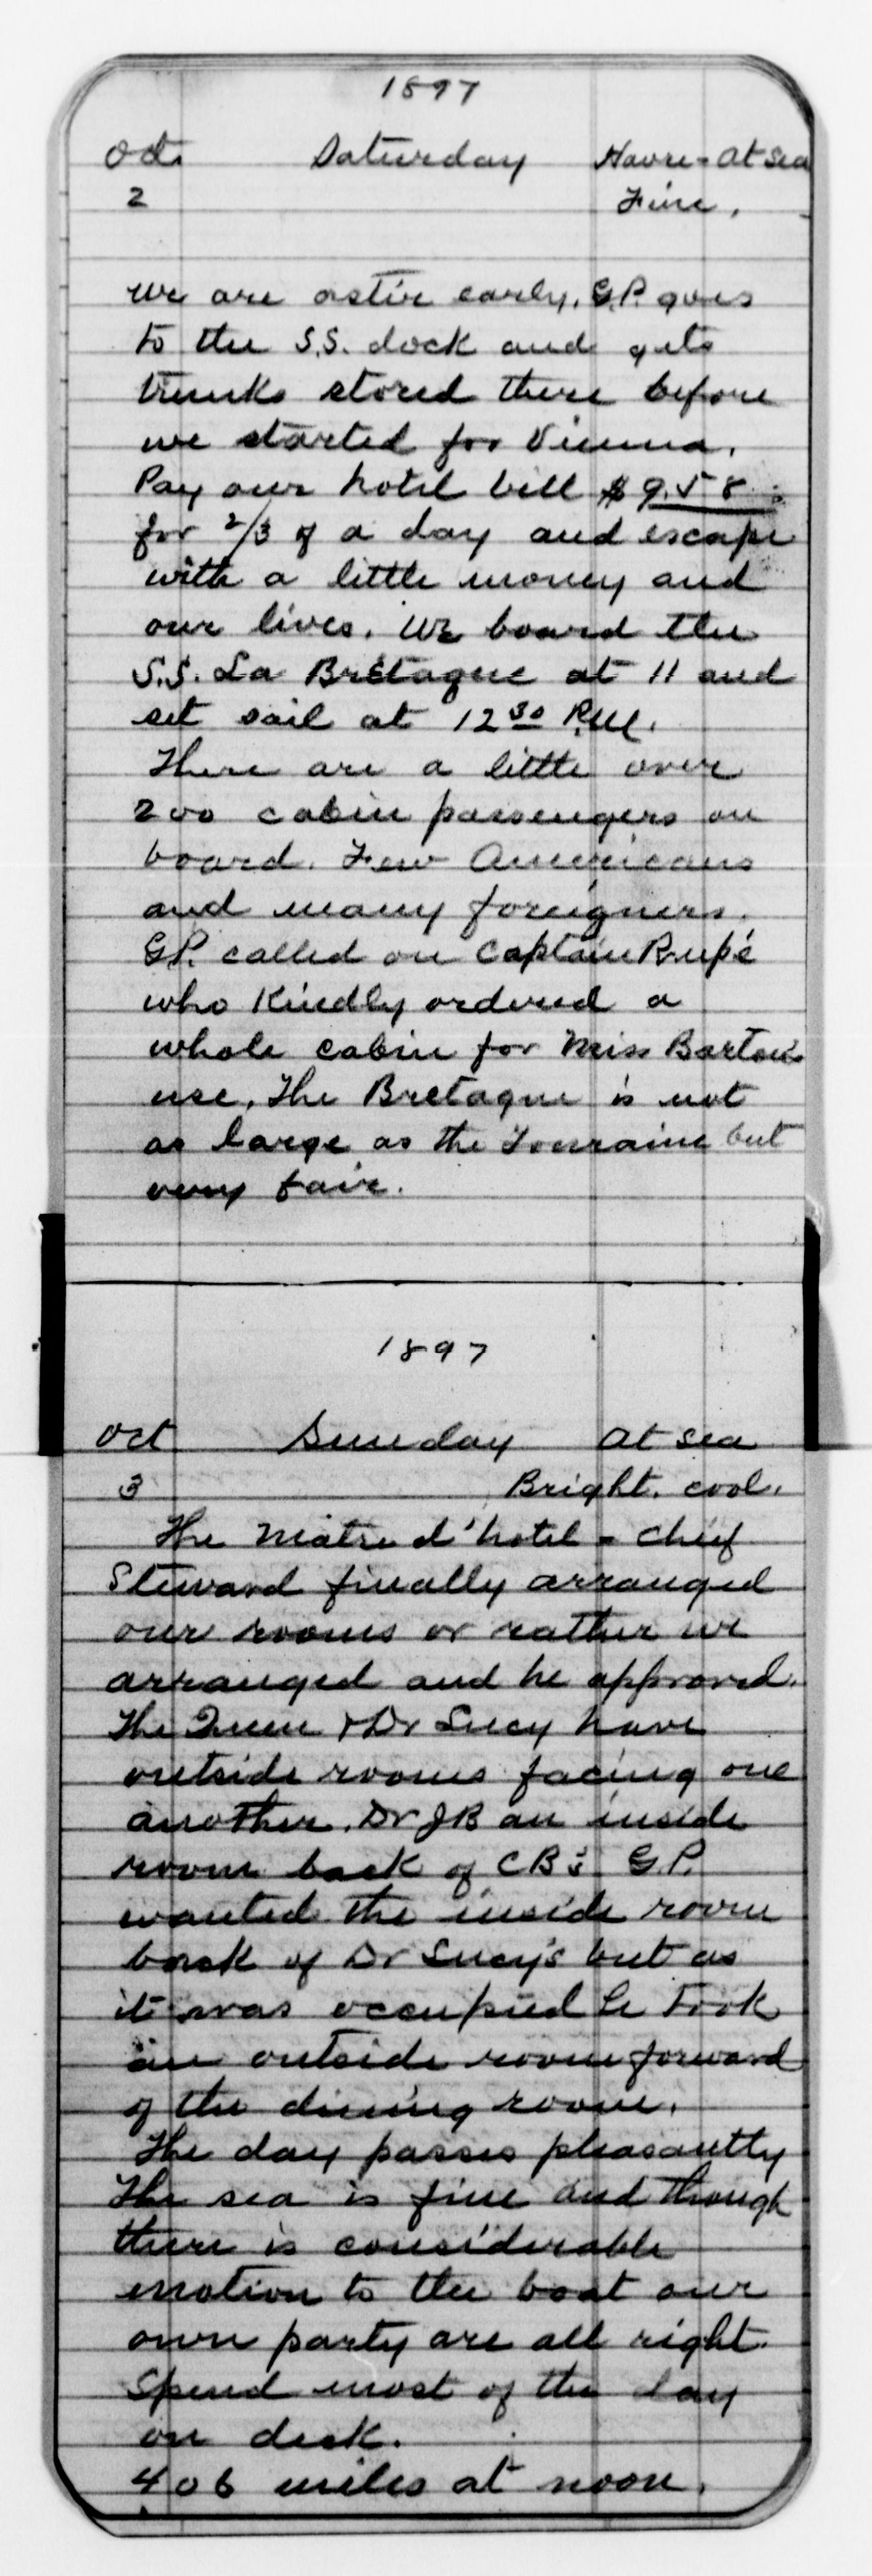 1897
Oct. Saturday Havre - At Sea
2 Fine.
We are astir early. G.P. goes
to the S.S. dock and gets
trunks stored there before
we started for Vienna.
Pay our hotel bill $9.58
for 2/3 of a day and escape
with a little money and
our lives. We board the
S.S. La Bretagne at 11 and
set sail at 12 30 P.M.
There are a little over
200 cabin passengers on
board. Few Americans
and many foreigners.
G.P. called on Captain Rupé
who kindly ordered a
whole cabin for Miss Barton's
use. The Bretagne is not
as large as the Touraine but
very fair.
1897
Oct Sunday At sea
3 Bright. cool.
The Maitre d'hotel - Chief
Steward finally arranged
our rooms or rather we
arranged and he approved.
The Queen & Dr Lucy have
outside rooms facing one
another. Dr JB an inside
room back of CB's. G.P.
wanted the inside room
back of Dr Lucy's but as
it was occupied he took
an outside room forward
of the dining room.
The day passes pleasantly
The sea is fine and though
there is considerable
motion to the boat our
own party are all right.
Spend most of the day
on deck.
406 miles at noon.